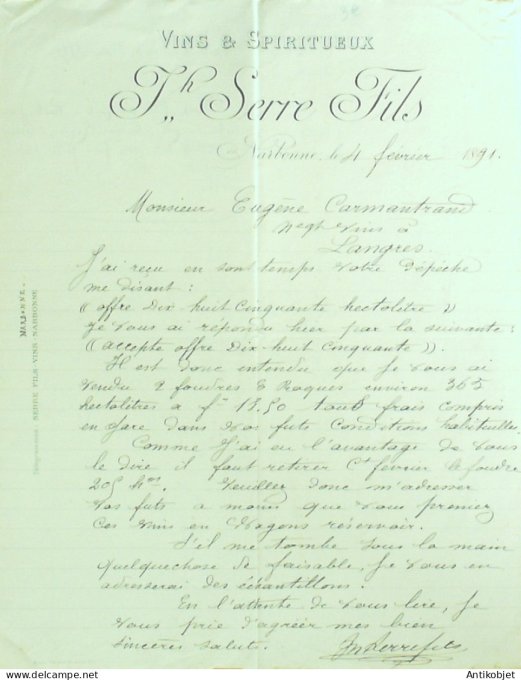 VINS & SPIRITUEUX
Jh Serre Fils
Narbonne, le 4 février 1891.
Monsieur Eugène Carmantrand
Negt Vins à
Langres.
J'ai reçu en son temps votre dépêche
me disant :
(( offre Dix-huit Cinquante hectolitre ))
Je vous ai répondu hier par la suivante :
(( accepte offre Dix-huit Cinquante )).
Il est donc entendu que je vous ai
vendu 2 foudres 8 Roques environ 365
hectolitres à f 18.50 tous frais compris
en gare dans vos futs Conditions habituelles.
Comme j'ai eu l'avantage de vous
le dire il faut retirer Ct février le foudre
205 h. Veuillez donc m'adresser
vos futs a moins que vous preniez
ces vins en Wagons réservoir.
S'il me tombe sous la main
quelquechose de faisable, je vous en
adresserai des échantillons.
En l'attente de vous lire, je
vous prie d'agréer mes bien
sincères saluts.
Jh Serre fils
Télégrammes: SERRE FILS-VINS-NARBONNE
NARBONNE.
Antikobjet